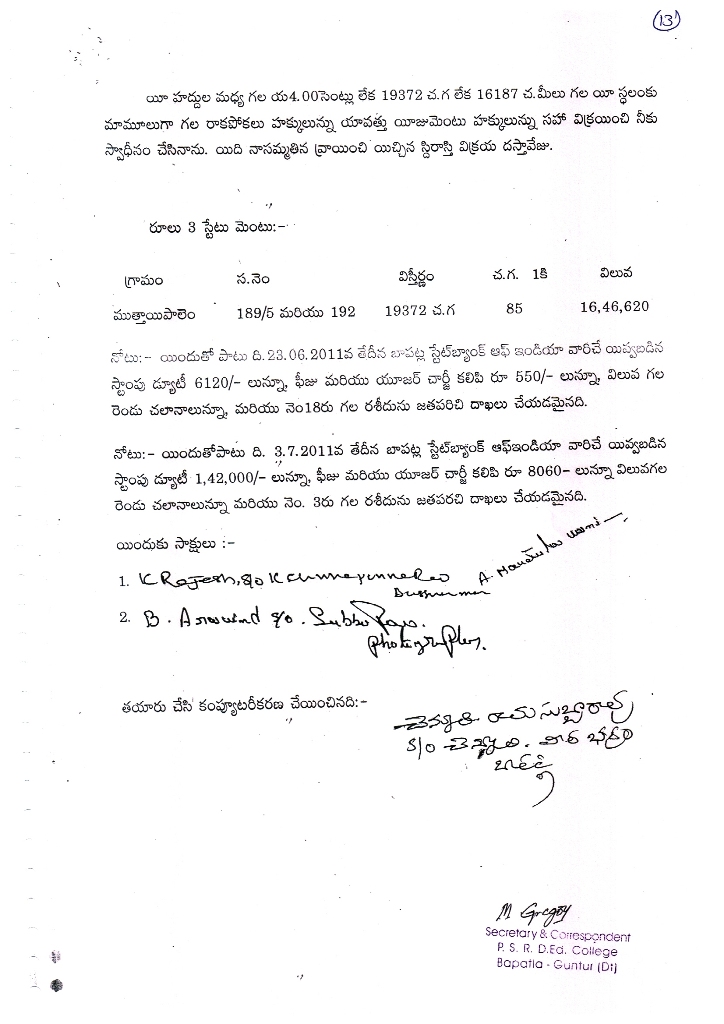 13
యీ హద్దుల మధ్య గల య4.00సెంట్లు లేక 19372 చ.గ లేక 16187 చ.మీలు గల యీ స్థలంకు
మామూలుగా గల రాకపోకలు హక్కులున్ను యావత్తు యీజుమెంటు హక్కులున్ను సహా విక్రయించి నీకు
స్వాధీనం చేసినాను. యిది నాసమ్మతిన వ్రాయించి యిచ్చిన స్దిరాస్తి విక్రయ దస్తావేజు.
రూలు 3 స్టేటు మెంటు:-
గ్రామం స.నెం విస్తీర్ణం చ.గ. 1కి విలువ
ముత్తాయిపాలెం 189/5 మరియు 192 19372 చ.గ 85 16,46,620
నోటు:- యిందుతో పాటు ది.23.06.2011వ తేదీన బాపట్ల స్టేట్‌బ్యాంక్ ఆఫ్ ఇండియా వారిచే యివ్వబడిన
స్టాంపు డ్యూటీ 6120/- లున్నూ, ఫీజు మరియు యూజర్ చార్జీ కలిపి రూ 550/- లున్నూ, విలువ గల
రెండు చలానాలున్నూ, మరియు నెం18రు గల రశీదును జతపరిచి దాఖలు చేయడమైనది.
నోటు:- యిందుతోపాటు ది. 3.7.2011వ తేదీన బాపట్ల స్టేట్‌బ్యాంక్ ఆఫ్‌ఇండియా వారిచే యివ్వబడిన
స్టాంపు డ్యూటీ 1,42,000/- లున్నూ, ఫీజు మరియు యూజర్ చార్జీ కలిపి రూ 8060- లున్నూ విలువగల
రెండు చలానాలున్నూ మరియు నెం. 3రు గల రశీదును జతపరచి దాఖలు చేయడమైనది.
యిందుకు సాక్షులు :-
1. K Rajesh, S/o K
2. B. Aravind S/o. Subba Rao.
photographer.
తయారు చేసి కంప్యూటరీకరణ చేయించినది:-
రామ సుబ్బారావు
S/o
M Gregory
Secretary & Correspondent
P. S. R. D.Ed. College
Bapatla - Guntur (Dt)